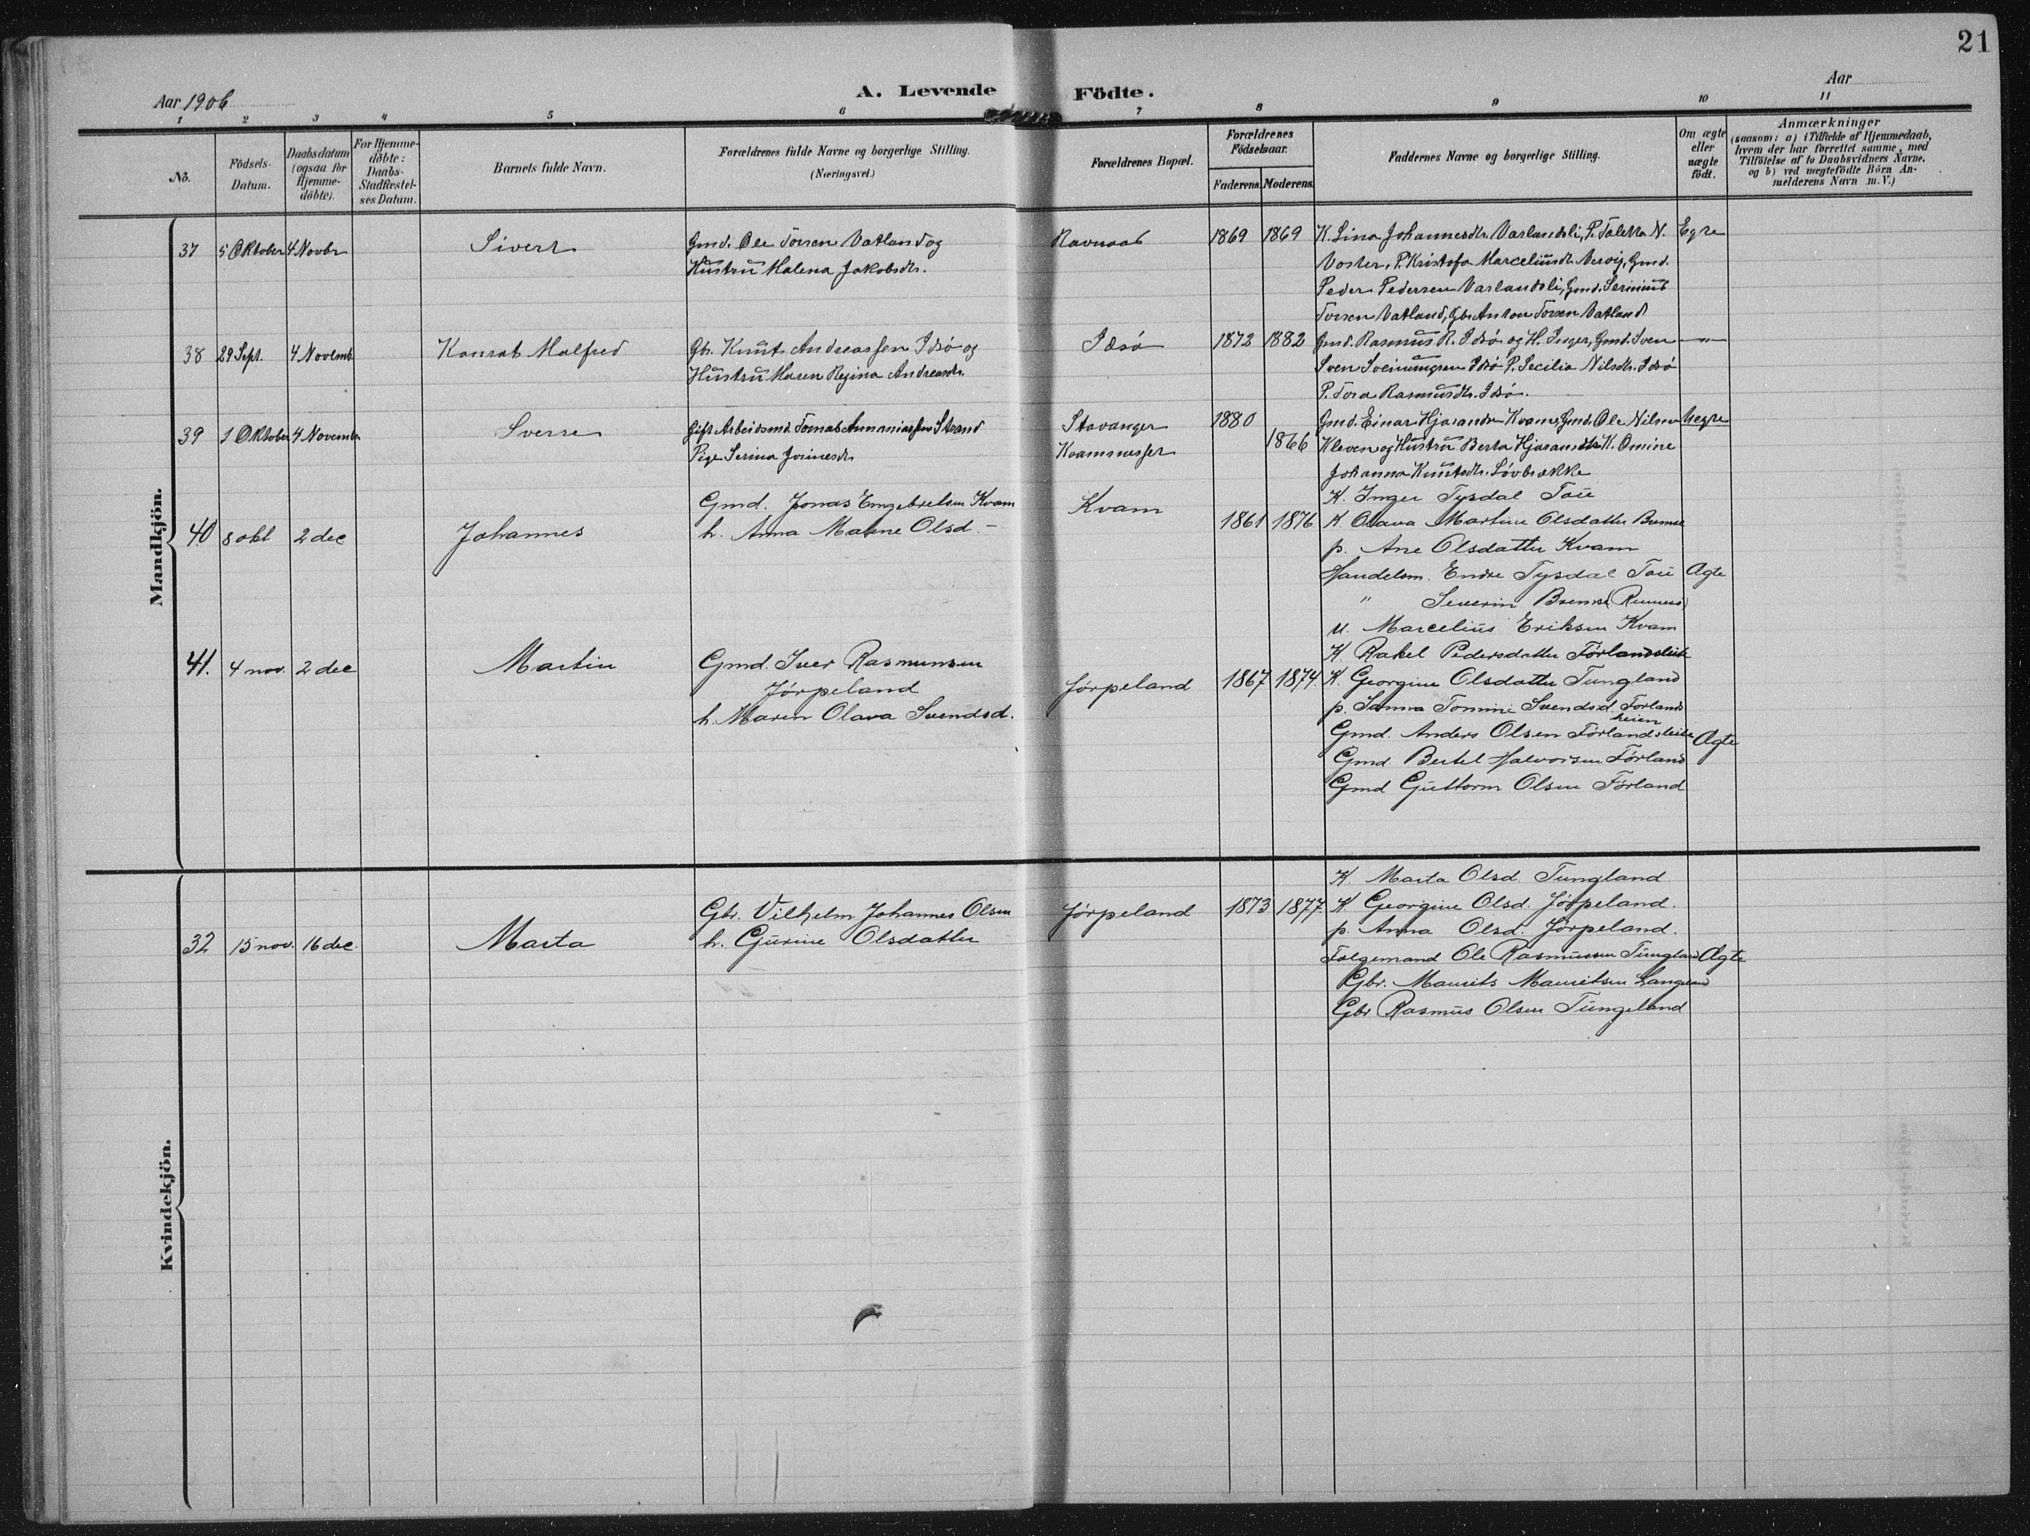 21
Aar 1906
A. Levende Födte.
Aar
1 2 3 4 5 6 7 8 9 10 11
No.
Födsels-Datum.
Daabsdatum (ogsaa for Hjemmedöbte).
For Hjemmedöbte: Daabs-Stadfæstelses Datum.
Barnets fulde Navn.
Forældrenes fulde Navne og borgerlige Stilling.
(Næringsvei.)
Forældrenes Bopæl.
Forældrenes Födselsaar.
Faderens. Moderens.
Faddernes Navne og borgerlige Stilling.
Om ægte eller uægte födt.
Anmærkninger
(saasom: a) i Tilfælde af Hjemmedaab, hvem der har forrettet samme, med Tilföielse af to Daabsvidners Navne, og b) ved uægtefödte Börn Anmelderens Navn m. V.)
Mandkjön.
37 5 Oktober 4 Novbr Sivert Gmd. Ole Torsen Vatland og Ravnaas 1869 1869 K. Lina Johannesdtr. Vatlandsli, P. Taletta N. Egte
Hustru Malena Jakobsdtr. Voster, P. Kristofa Marceliusdtr. Nervig, Gmd.
Peder Pedersen Vatlandsli, Gmd. Serinius
Torsen Vatland, Gbr. Anton Torsen Vatland
38 29 Sept. 4 Novemb. Konrat Malfred Gbr. Knut Andreassen Idsö og Idsö 1872 1882 Gmd. Rasmus R. Idsö og H. Inger, Gmd. Sven —"—
Hustru Maren Regina Andreasdtr. Sven Sveinungsen Idsö P. Secilia Nilsdtr. Idsö
P. Tora Rasmusdtr. Idsö.
39 1 Oktober 4 November Sverre Gift Arbeidsmd. Tomas Annaniassen Strand Stavanger 1880 Gmd. Einar Hjorandsen Kvam, Gmd. Ole Nilsen Uegte
Pige Serina Jonnesdtr. Kvamsnesset 1866 Kleven og Hustru Berta Hjorandsdtr. K. Omine
Johanna Knutsdtr. Lövbrække
40 8 okt 2 dec Johannes Gmd. Jonas Engebretsen Kvam Kvam 1861 1876 K. Inger Tysdal Tou
h. Anna Malene Olsd – K Olava Martine Olsdatter Bremse
p. Ane Olsdatter Kvam
Handelsm. Endre Tysdal Tou Ægte
" Severin Bremse
u. Marcelius Eriksen Kvam
41. 4 nov. 2 dec Martin Gmd. Iver Rasmussen Jørpeland 1867 1874 K Rakel Pedersdatter Førlandsleite
Jørpeland K. Georgine Olsdatter Tungland
h. Maren Olava Svendsd. p. Sanna Tomine Svendsd. Førlandsheien
Gmd. Anders Olsen Førlandsleite Ægte
Gmd Bertel Halvorsen Førland
Gmd Guttorm Olsen Førland
Kvindekjön.
32 15 nov. 16 dec. Marta Gbr. Vilhelm Johannes Olsen Jørpeland 1873 1877 K. Marta Olsd. Tungland
h. Gurine Olsdatter K Georgine Olsd. Jørpeland.
p. Anna Olsd. Jørpeland.
Følgemand Ole Rasmussen Tungland Ægte
Gbr. Maurits Mauritsen Langeland
Gbr Rasmus Olsen Tungeland